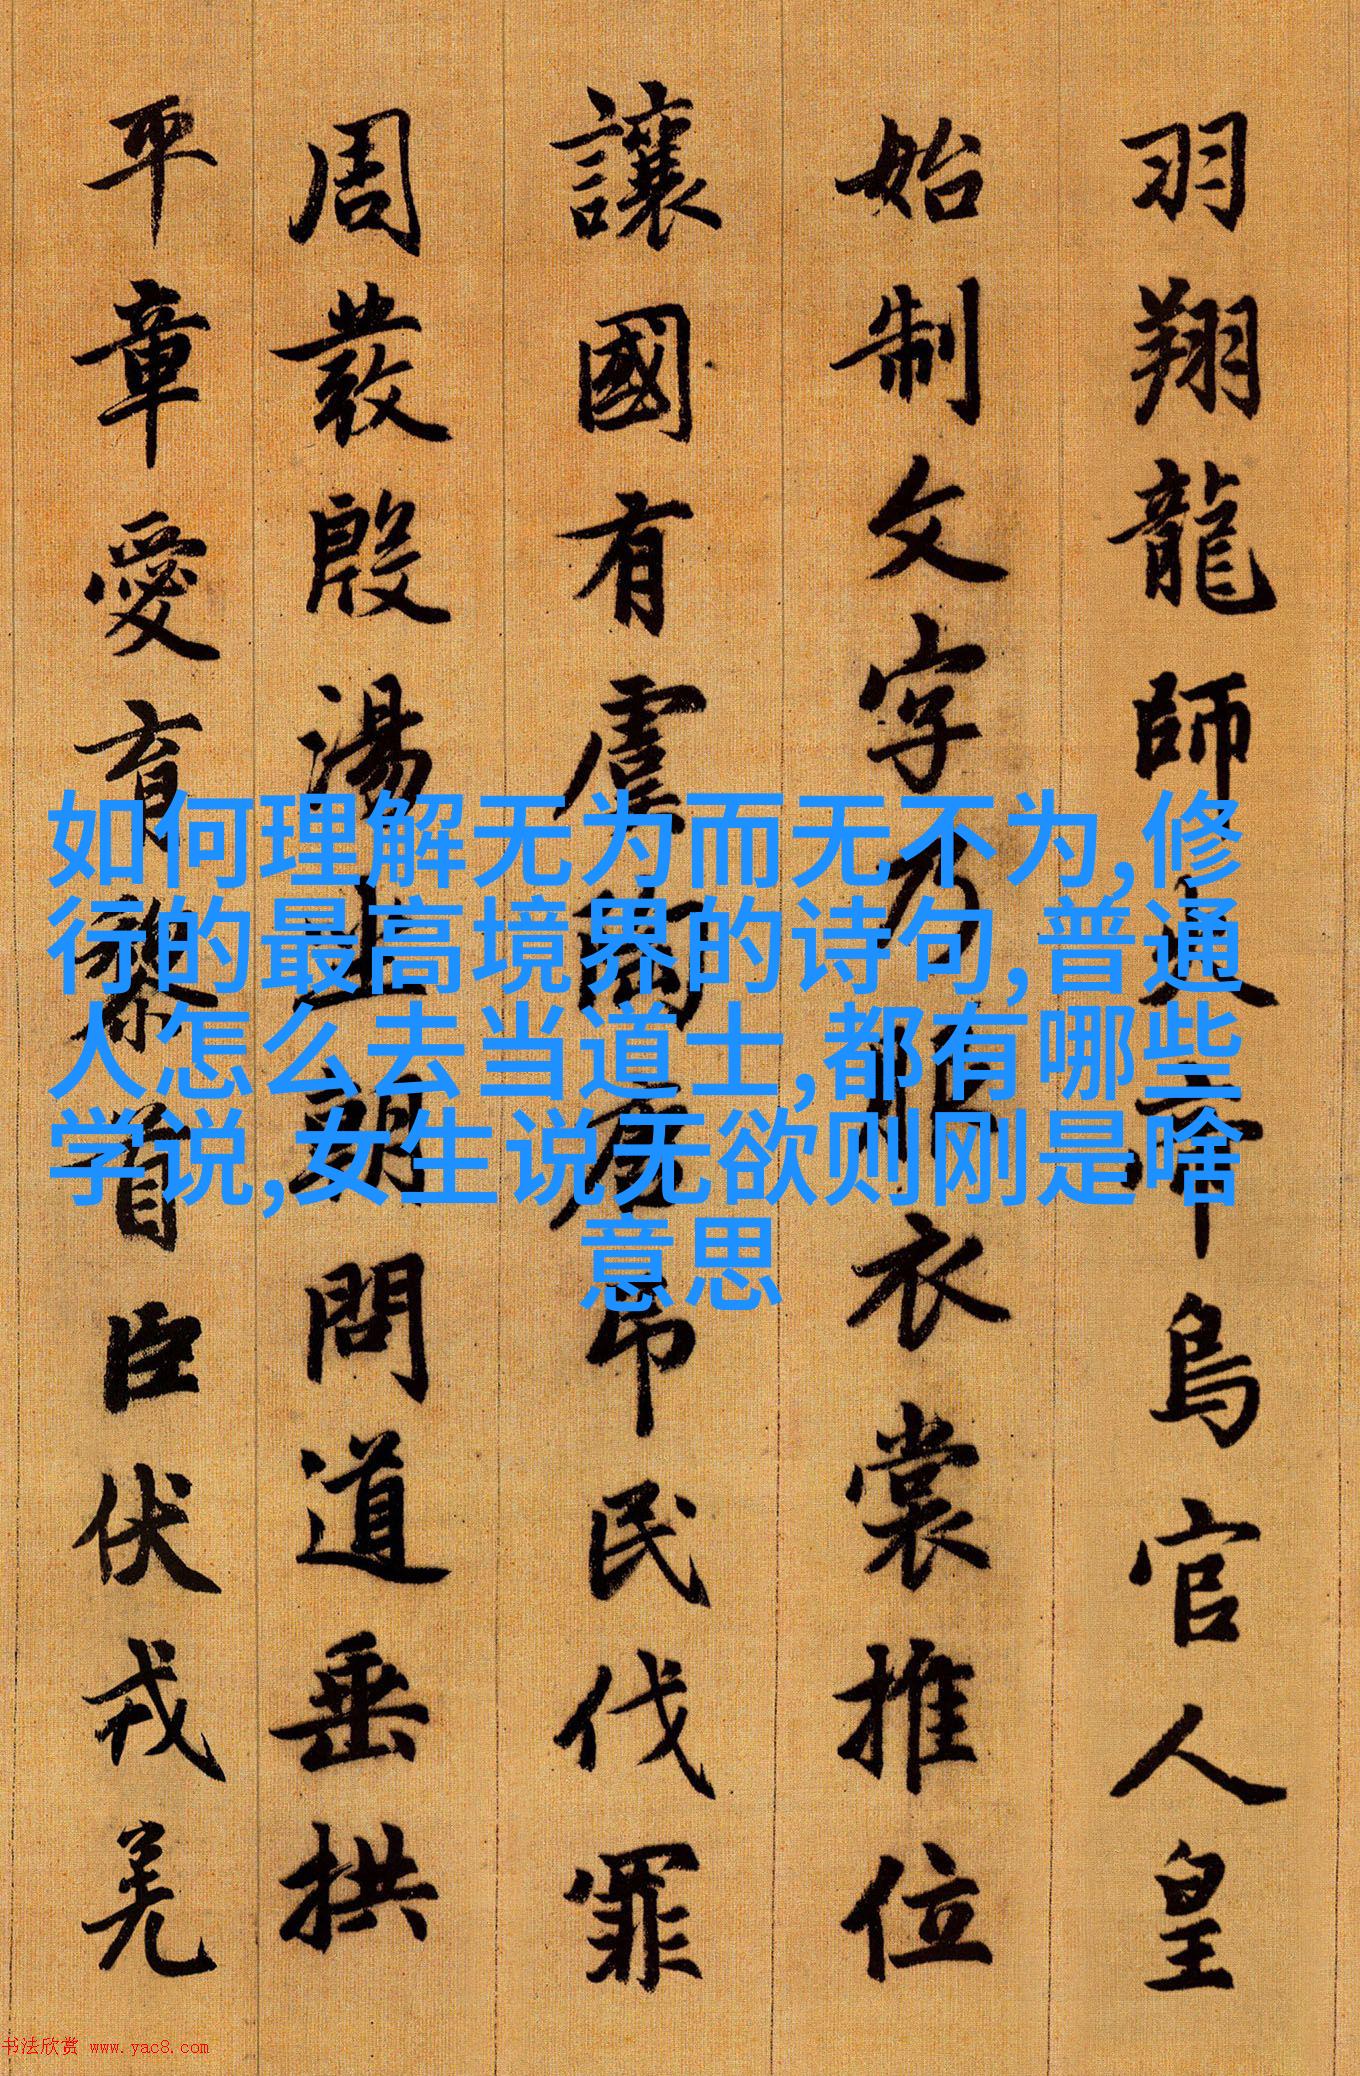 羽翔龍師火帝鳥官人皇
始制文字乃服衣裳推位
讓國有虞陶唐吊民伐罪
周發殷湯坐朝問道垂拱
平章愛育黎首臣伏戎羌
如何理解无为而无不为,修
行的最高境界的诗句,普通
人怎么去当道士,都有哪些
学说,女生说无欲则刚是啥
意思
书法欣赏 www.yac8.com